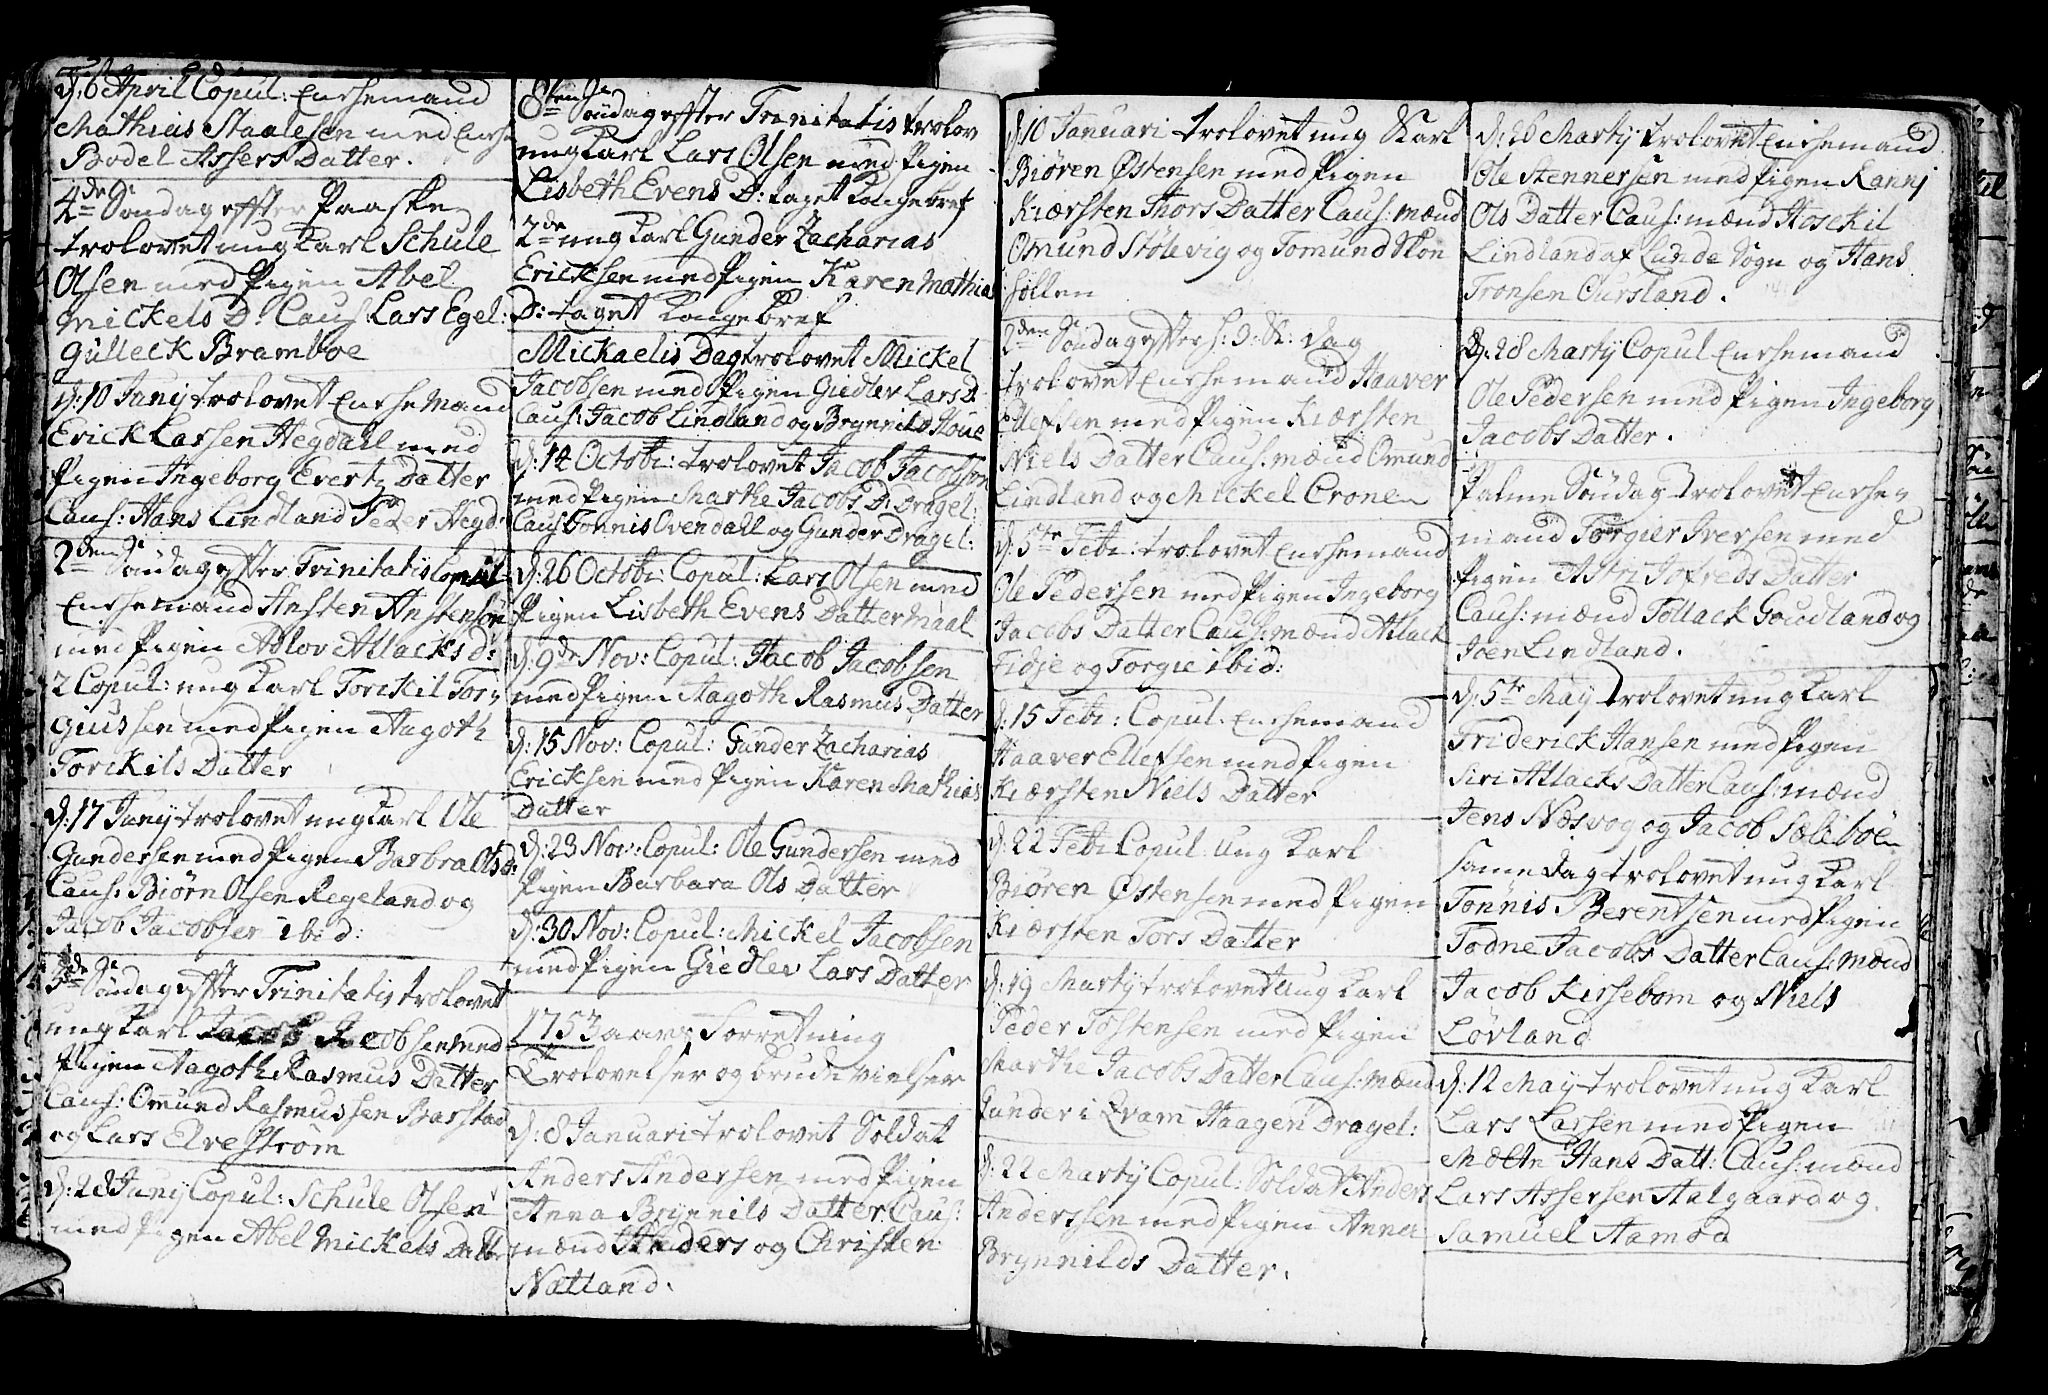 d: 6 April Copul: Enchemand
Mathias Staalesen med Enche
Bodel Assers Datter.
4de Söndag effter Paaske
trolovet ung Karl Schule
Olsen med Pigen Abel
Mickels D: Caus: Lars Egel:
Gulleck Bramboe
d: 10 Junij trolovet Enche Mand
Erick Larsen Hegdall med
Pigen Ingeborg Evertz Datter
Caus: Hans Lindland Peder Hegd:
2den Söndag effter Trinitatis Copul
Enchemand Ansten Anstensön
med Pigen Adlov Atlacks d:
2 Copul: ung Karl Torckil Tor=
giussen med Pigen Aagoth
Torckils Datter
d: 17 Junij trolovet ung Karl Ole
Gundersen med Pigen Barbra Ols D:
Caus: Biørn Olsen Regeland og
Jacob Jacobsen ibid:
3de Söndag effter Trinitatis trolovet
ung Karl Jacob Jacobsen med
Pigen Aagoth Rasmus Datter
Caus: Omund Rasmussen Barstad
og Lars Elvestrøm
d: 28 Junij Copul: Schule Olsen
med Pigen Abel Mickels Datter
8tende Söndag effter Trinitatis trolov
ung Karl Lars Olsen med Pigen
Lisbeth Evens D: taget Kongebref
2de ung Karl Gunder Zacharias
Ericksen med Pigen Karen Mathias
D: taget Kongebref
Michaelis Dag trolovet Mickel
Jacobsen med Pigen Giedlev Lars D.
Caus: Jacob Lindland og Brynnild Houe
d: 14 Octobr: trolovet Jacob Jacobsen
med Pigen Marthe Jacobs D: Dragel:
Caus Tonnis Ovendall og Gunder Dragel:
d: 26 Octobr: Copul: Lars Olsen med
Pigen Lisbeth Evens Datter Maal
d: 9de Nov: Copul: Jacob Jacobsen
med Pigen Aagoth Rasmus Datter
d: 15 Nov: Copul: Gunder Zacharias
Ericksen med Pigen Karen Mathias
Datter
d: 23 Nov: Copul: Ole Gundersen med
Pigen Barbara Ols Datter
d: 30 Nov: Copul: Mickel Jacobsen
med Pigen Giedlev Lars Datter
1753 aars Forretning
Trolovelser og brude vielser
d: 8 Januari trolovet Soldat
Anders Andersen med Pigen
Anna Brynnils Datter. Caus:
mænd Anders og Christen
Natland.
d: 10 Januari trolovet ung Karl
Biøren Østensen med Pigen
Kiærsten Thors Datter Caus: mænd
Omund Stølevig og Tomund Skon
søllen
2den Söndag effter h: 3: K: dag
trolovet Enchemand Haaver
Ellefsen med Pigen Kiærsten
Niels Datter Caus: mænd Omund
Lindland og Mickel Cronen
d: 5te Febr: trolovet Enchemand
Ole Pedersen med Pigen Ingeborg
Jacobs Datter Caus: mænd Atlack
Eidje og Torgie ibid:
d: 15 Febr: Copul: Enchemand
Haaver Ellefsen med Pigen
Kiærsten Niels Datter
d: 22 Febr Copul: ung Karl
Biøren Østensen med Pigen
Kiærsten Tors Datter
d: 19 Martij trolovet ung Karl
Peder Tostensen med Pigen
Marthe Jacobs Datter Caus: mænd
Gunder i Qvam Haagen Dragel:
d: 22 Martij Copul: Soldat Anders
Anderssen med Pigen Anna
Brynnilds Datter.
d: 26 Martij trolovet Enchemand
Ole Stennersen med Pigen Rannj
Ols Datter Caus: mænd Hosckil
Lindland af Lunde Sogn og Hans
Tronsen Oursland.
d: 28 Martij Copul Enchemand
Ole Pedersen med Pigen Ingeborg
Jacobs Datter.
Palme Söndag trolovet Enche=
mand Torgier Iversen med
Pigen Astri Jofreds Datter
Caus: mænd Tollack Goudland og
Joen Lindland.
d: 5te May trolovet ung Karl
Friderick Hansen med Pigen
Siri Atlacks Datter Caus: mænd
Jens Næsvog og Jacob Sæliboe
same dag trolovet ung Karl
Tönnis Berentsen med Pigen
Todne Jacobs Datter Caus: mænd
Jacob Kirsebom og Niels
Lövland
d: 12 May trolovet ung Karl
Lars Larsen med Pigen
Mætn Hans Datt: Caus: mænd
Lars Assersen Aalgaard og
Samuel Hamra